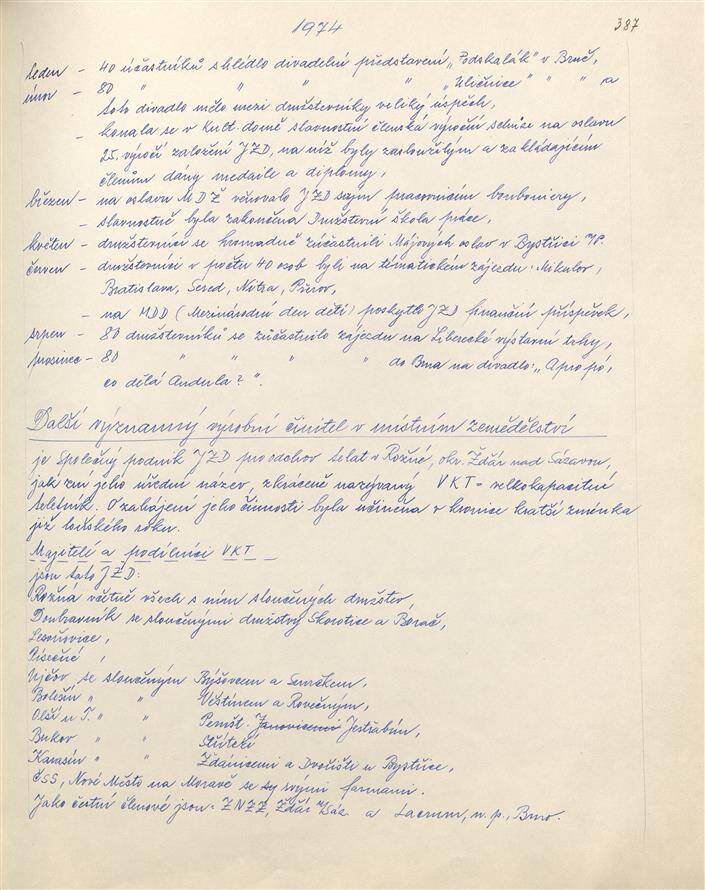 1974
387
leden - 40 účastníků shlédlo divadelní představení „Podskalák" v Brně,
únor - 80 " " " " „Uličnice" " " " a
toto divadlo mělo mezi družstevníky veliký úspěch,
- konala se v Kult. domě slavnostní členská výroční schůze na oslavu
25. výročí založení JZD, na níž byly zasloužilým a zakládajícím
členům dány medaile a diplomy,
březen - na oslavu MDŽ věnovalo JZD svým pracovnicím bonboniery,
- slavnostně byla zakončena Družstevní škola práce,
květen - družstevníci se hromadně zúčastnili Májových oslav v Bystřici n/P.
červen - družstevníci v počtu 40 osob byli na tématickém zájezdu: Mikulov,
Bratislava, Sereď, Nitra, Přerov,
- na MDD (Mezinárodní den dětí) poskytlo JZD finanční příspěvek,
srpen - 80 družstevníků se zúčastnilo zájezdu na Liberecké výstavní trhy,
prosinec - 80 " " " " do Brna na divadlo: „Apropó,
co dělá Andula?".
Další významný výrobní činitel v místním zemědělství
je Společný podnik JZD pro odchov telat v Rožné, okr. Žďár nad Sázavou,
jak zní jeho úřední název, zkráceně nazývaný VKT - velkokapacitní
teletník. O zahájení jeho činnosti byla učiněna v kronice kratší zmínka
již loňského roku.
Majitelé a podílníci VKT
jsou tato JZD:
Rožná včetně všech s ním sloučených družstev,
Doubravník se sloučenými družstvy Skorotice a Borač,
Lesoňovice,
Písečné,
Ujčov, se sloučeným Býšovcem a Smrčkem,
Bolešín " " Věstínem a Rovečným,
Olší u T. " " Pernšt. Janovicemi Jestřabím,
Bukov " " Střítěží
Karasín " " Ždánicemi a Dvořišti u Bystřice,
ČSS, Nové Město na Moravě se svými farmami.
Jako čestní členové jsou: ZNZZ, Žďár n/Sáz. a Lacrum, n. p., Brno.